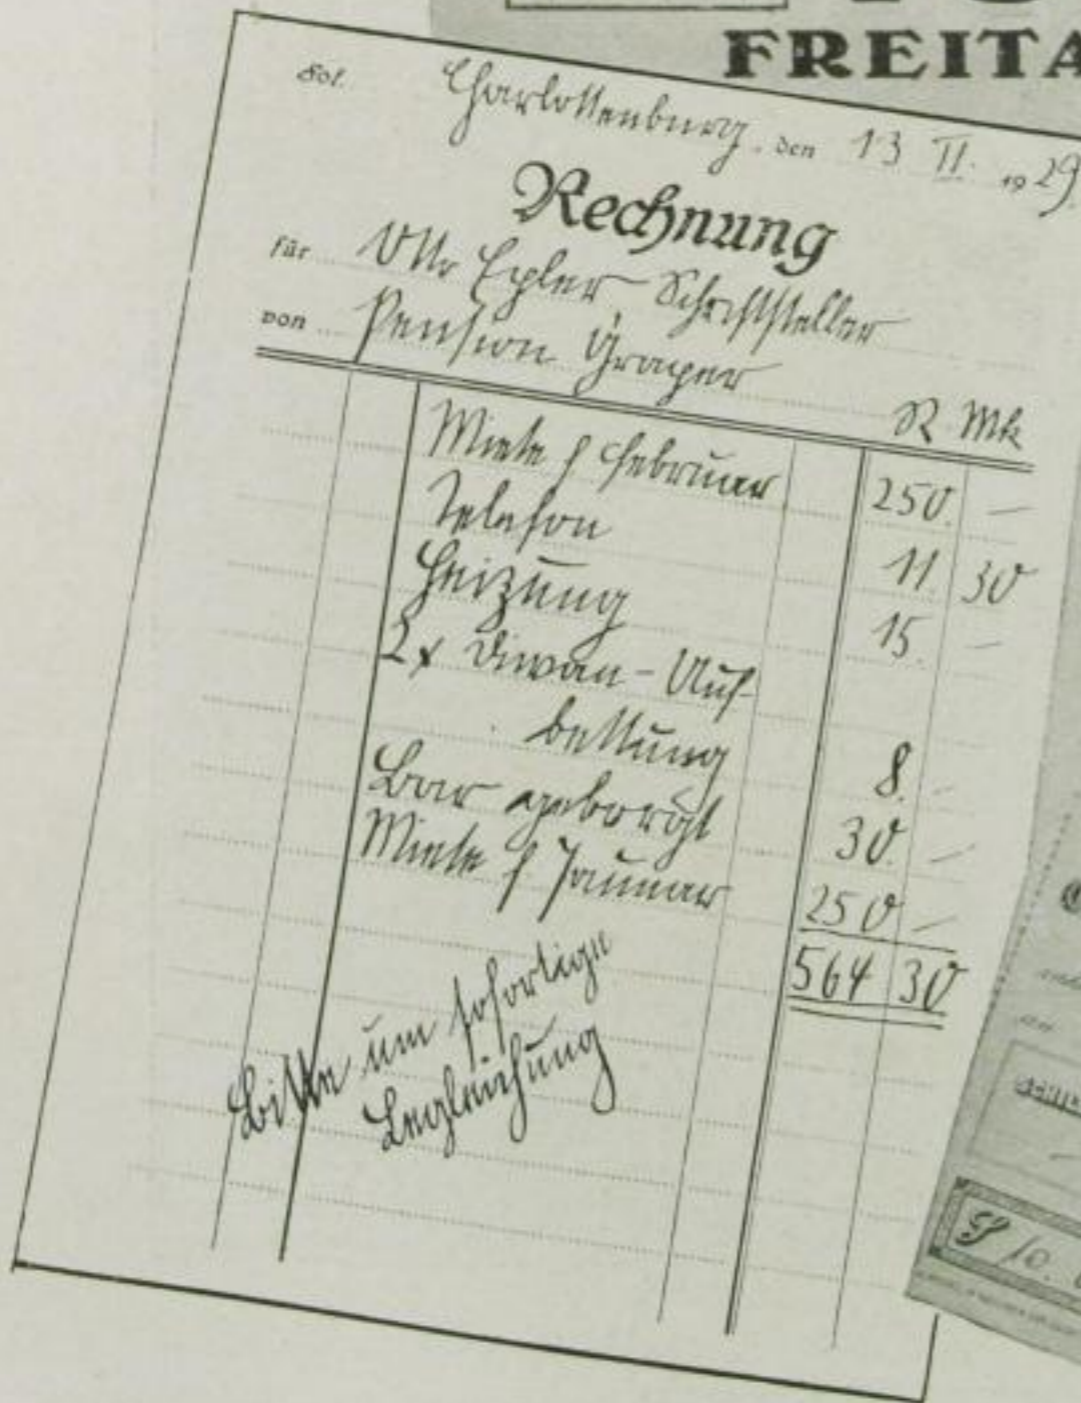 FREITA
Fol. Charlottenburg, den 13 II. 1929.
Rechnung
für Otto Epler, Schriftsteller
von Pension Graper
R Mk
Miete f Februar 250. —
Telefon 11. 30
Heizung 15. —
2x Diwan-Auf-
bettung 8. —
Bar geborgt 30. —
Miete f Januar 250 —
564 30
Bitte um sofortige
Begleichung